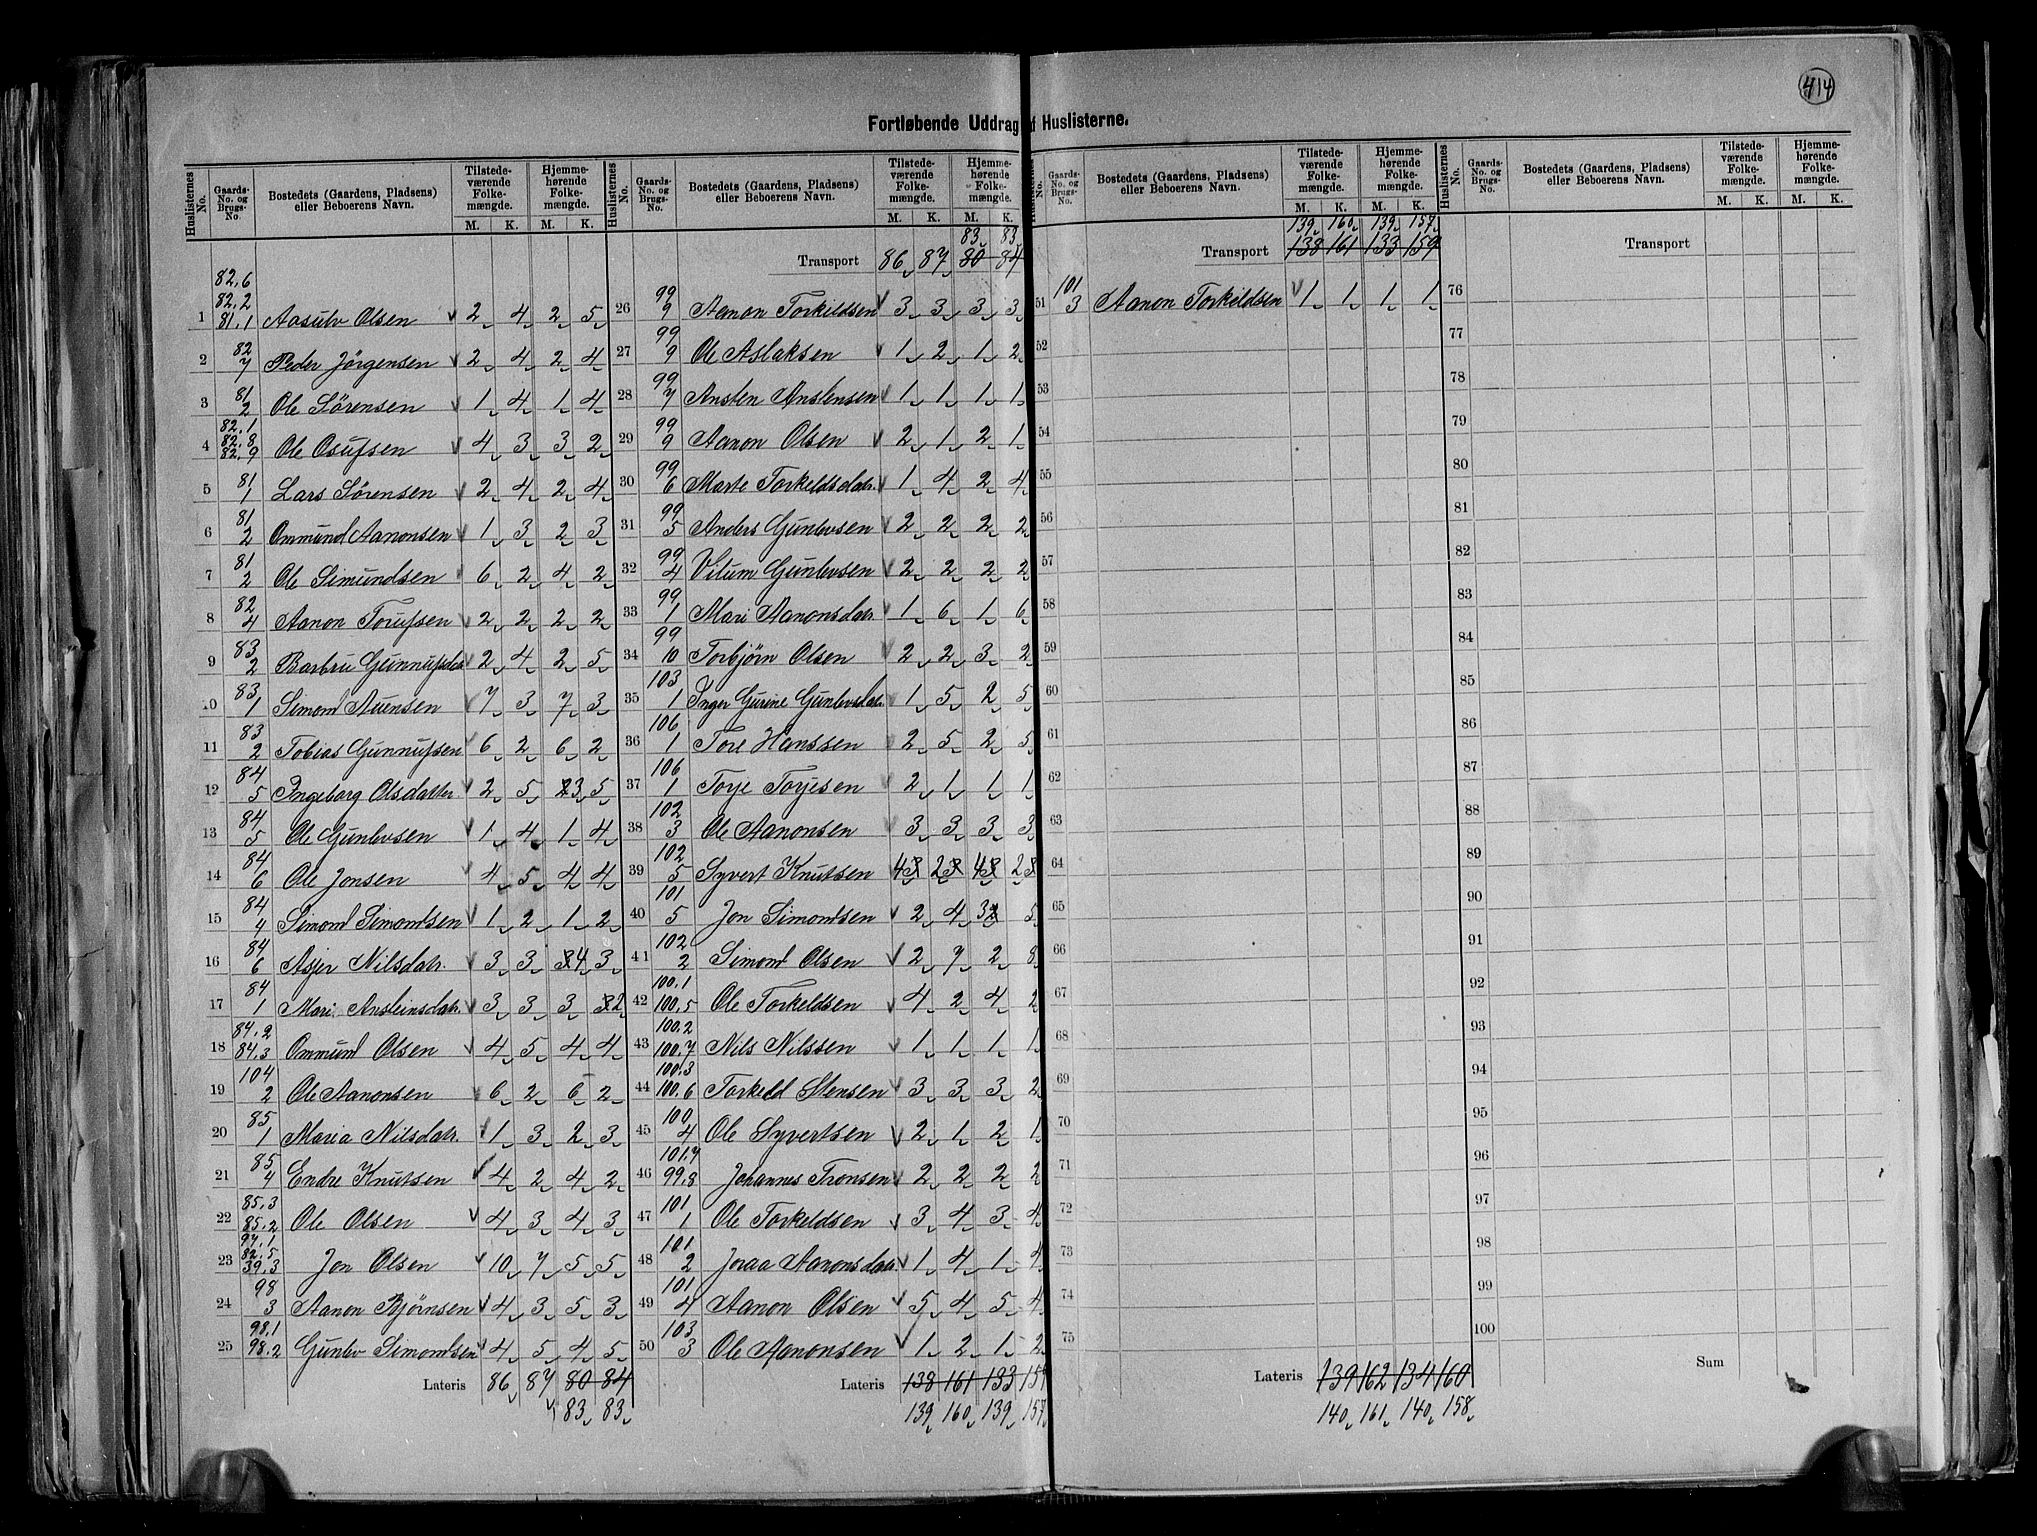 414
Fortløbende Uddrag af Huslisternes.
Huslisternes No. | Gaards-No. og Brugs-No. | Bostedets (Gaardens, Pladsens) eller Beboerens Navn. | Tilstedeværende Folkemængde. M. K. | Hjemmehørende Folkemængde. M. K.
1 | 82,6 82,2 81,1 | Aasulv Olsen | 2 | 4 | 2 | 5
2 | 82 7 | Peder Jörgensen | 2 | 4 | 2 | 4
3 | 81 2 | Ole Sörensen | 1 | 4 | 1 | 4
4 | 82,1 82,8 82,9 | Ole Osufsen | 4 | 3 | 3 | 2
5 | 81 1 | Lars Sörensen | 2 | 4 | 2 | 4
6 | 81 2 | Ommund Aanonsen | 1 | 3 | 2 | 3
7 | 81 2 | Ole Simundsen | 6 | 2 | 4 | 2
8 | 82 4 | Aanon Torufsen | 2 | 2 | 2 | 2
9 | 83 2 | Barbru Gunnufsdtr | 2 | 4 | 2 | 5
10 | 83 1 | Simond Auensen | 7 | 3 | 7 | 3
11 | 83 2 | Tobias Gunnufsen | 6 | 2 | 6 | 2
12 | 84 5 | Ingeborg Olsdatter | 2 | 5 | 3 | 5
13 | 84 5 | Ole Gunlevsen | 1 | 4 | 1 | 4
14 | 84 6 | Ole Jonsen | 4 | 5 | 4 | 4
15 | 84 4 | Simond Simondsen | 1 | 2 | 1 | 2
16 | 84 6 | Asjer Nilsdatr. | 3 | 3 | 3 4 | 3
17 | 84 1 | Mari Ansteinsdatr. | 3 | 3 | 3 | 3 2
18 | 84,2 84,3 | Ommund Olsen | 4 | 5 | 4 | 4
19 | 104 2 | Ole Aanonsen | 6 | 2 | 6 | 2
20 | 85 1 | Maria Nilsdatr. | 1 | 3 | 2 | 3
21 | 85 4 | Endre Knutsen | 4 | 2 | 4 | 2
22 | 85,3 85,2 | Ole Olsen | 4 | 3 | 4 | 3
23 | 97,1 82,5 39,3 | Jon Olsen | 10 | 7 | 5 | 5
24 | 98 3 | Aanon Bjørnsen | 4 | 3 | 5 | 3
25 | 98,1 98,2 | Gunlev Simondsen | 4 | 5 | 4 | 5
Lateris 86 87 80 84
83 83
Huslisternes No. | Gaards-No. og Brugs-No. | Bostedets (Gaardens, Pladsens) eller Beboerens Navn. | Tilstedeværende Folkemængde. M. K. | Hjemmehørende Folkemængde. M. K.
83 83
Transport 86 87 80 84
26 | 99 9 | Aanon Torkildsen | 3 | 3 | 3 | 3
27 | 99 9 | Ole Aslaksen | 1 | 2 | 1 | 2
28 | 99 7 | Ansten Anstensen | 1 | 1 | 1 | 1
29 | 99 9 | Aanon Olsen | 2 | 1 | 2 | 1
30 | 99 6 | Marte Torkeldsdatr. | 1 | 4 | 2 | 4
31 | 99 5 | Anders Gunlevsen | 2 | 2 | 2 | 2
32 | 99 4 | Vilum Gunlevsen | 2 | 2 | 2 | 2
33 | 99 1 | Mari Aanonsdatr | 1 | 6 | 1 | 6
34 | 99 10 | Torbjørn Olsen | 2 | 2 | 3 | 2
35 | 103 1 | Inger Gurine Gunlevsdatr. | 1 | 5 | 2 | 5
36 | 106 1 | Tore Hanssen | 2 | 5 | 2 | 5
37 | 106 1 | Torje Torjesen | 2 | 1 | 1 | 1
38 | 102 3 | Ole Aanonsen | 3 | 3 | 3 | 3
39 | 102 5 | Syvert Knutsen | 4 3 | 2 3 | 4 3 | 2 3
40 | 101 5 | Jon Simondsen | 2 | 4 | 3 2 | 5
41 | 102 2 | Simond Olsen | 2 | 7 | 2 | 8
42 | 100,1 100,5 | Ole Torkeldsen | 4 | 2 | 4 | 2
43 | 100,2 100,7 | Nils Nilssen | 1 | 1 | 1 | 1
44 | 100,3 100,6 | Torkeld Stensen | 3 | 3 | 3 | 2
45 | 100 4 | Ole Syvertsen | 2 | 1 | 2 | 1
46 | 101,7 99,8 | Johannes Tronsen | 2 | 2 | 2 | 2
47 | 101 1 | Ole Torkeldsen | 3 | 4 | 3 | 4
48 | 101 2 | Joraa Aanonsdatr. | 1 | 4 | 1 | 4
49 | 101 4 | Aanon Olsen | 5 | 4 | 5 | 4
50 | 103 3 | Ole Aanonsen | 1 | 2 | 1 | 2
Lateris 138 161 133 159
139 160 139 157
No. | Gaards-No. og Brugs-No. | Bostedets (Gaardens, Pladsens) eller Beboerens Navn. | Tilstedeværende Folkemængde. M. K. | Hjemmehørende Folkemængde. M. K.
139 160 139 157
Transport 138 161 133 159
51 | 101 3 | Aanon Torkeldsen | 1 | 1 | 1 | 1
52
53
54
55
56
57
58
59
60
61
62
63
64
65
66
67
68
69
70
71
72
73
74
75
Lateris 139 162 134 160
140 161 140 158
Huslisternes No. | Gaards-No. og Brugs-No. | Bostedets (Gaardens, Pladsens) eller Beboerens Navn. | Tilstedeværende Folkemængde. M. K. | Hjemmehørende Folkemængde. M. K.
Transport
76
77
78
79
80
81
82
83
84
85
86
87
88
89
90
91
92
93
94
95
96
97
98
99
100
Sum